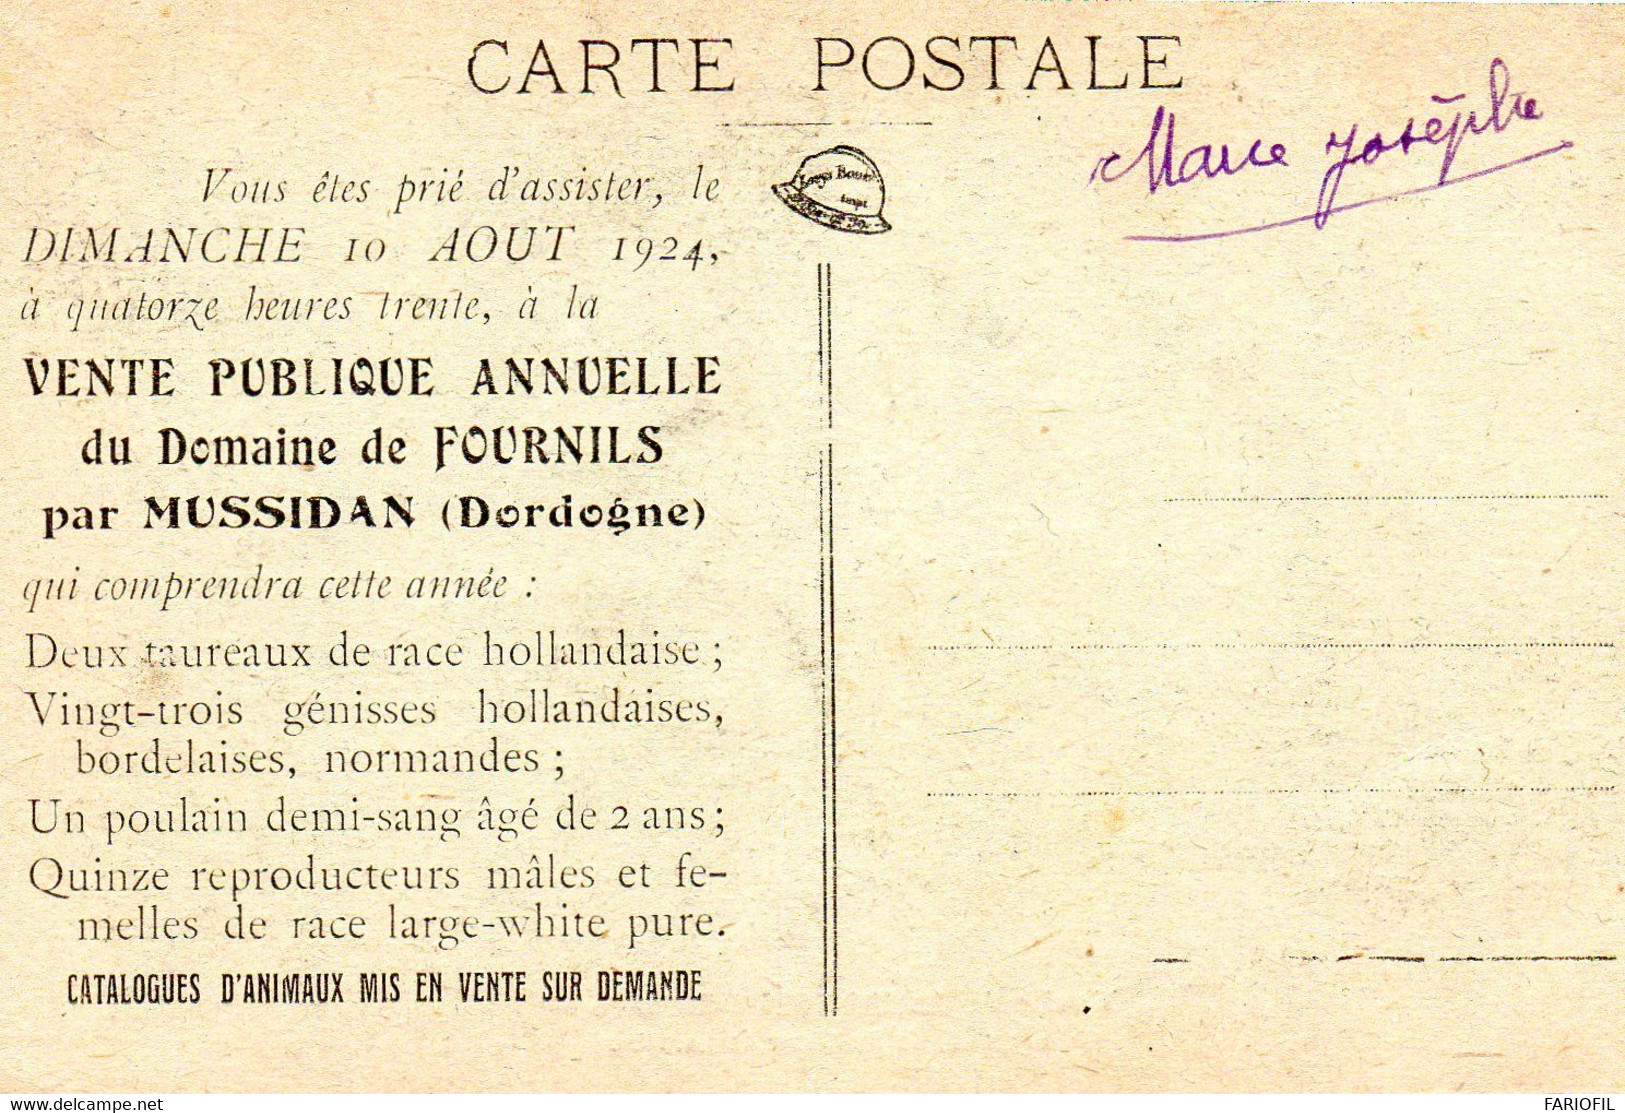 CARTE POSTALE
Joseph
Vous êtes prié d'assister, le
DIMANCHE 10 AOUT 1924,
à quatorze heures trente, à la
VENTE PUBLIQUE ANNUELLE
du Domaine de FOURNILS
par MUSSIDAN (Dordogne)
qui comprendra cette année :
Deux taureaux de race hollandaise ;
Vingt-trois génisses hollandaises,
bordelaises, normandes ;
Un poulain demi-sang âgé de 2 ans ;
Quinze reproducteurs mâles et fe-
melles de race large-white pure.
CATALOGUES D'ANIMAUX MIS EN VENTE SUR DEMANDE
delcampe.net
FARIOFIL